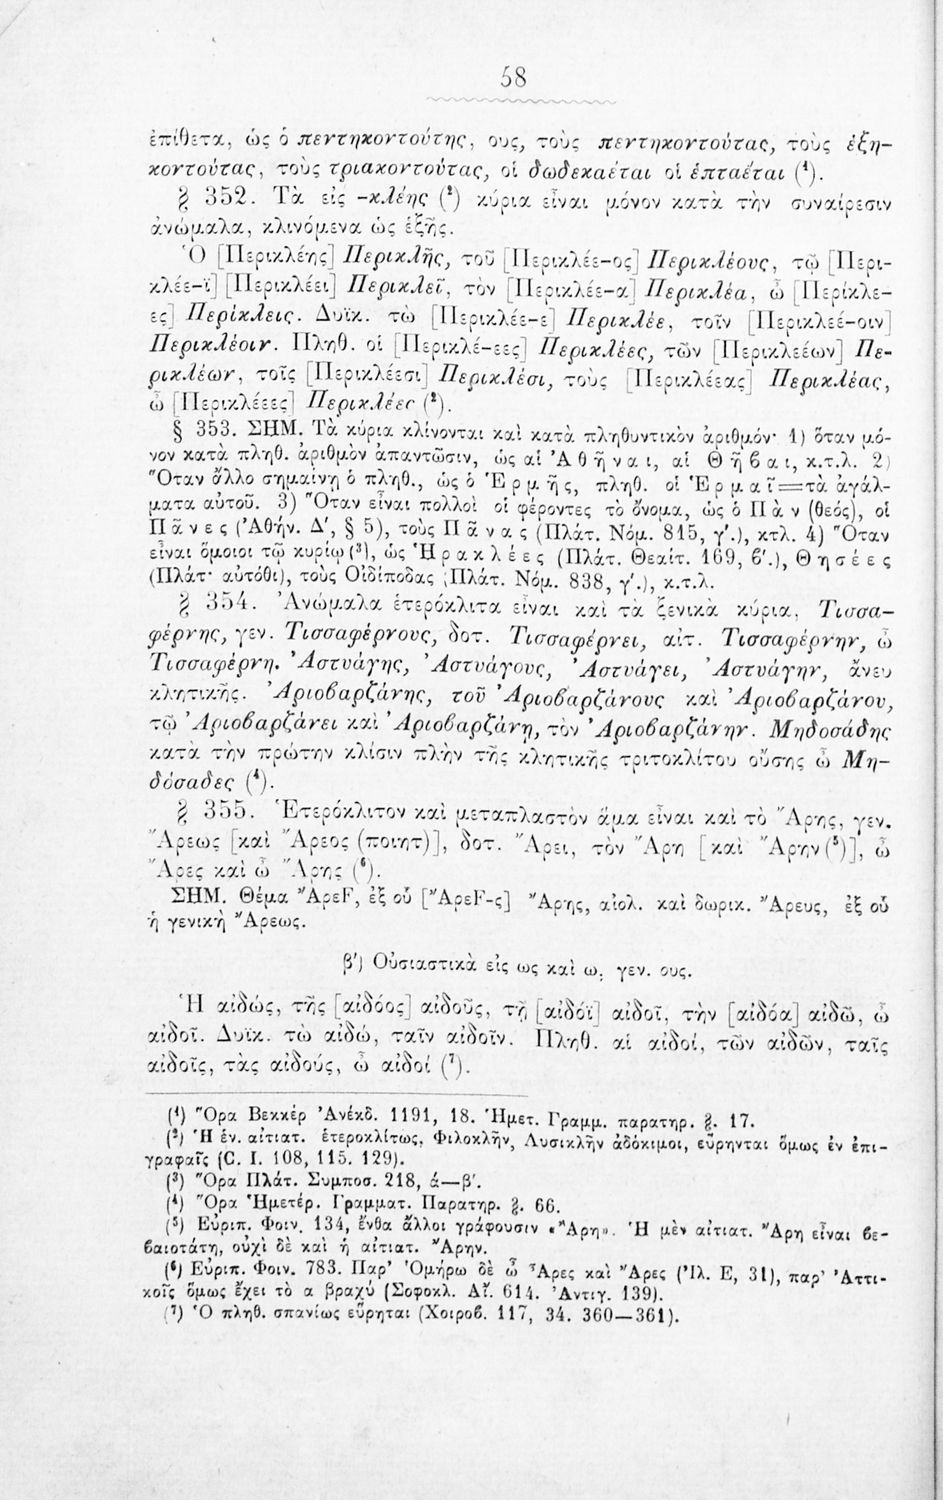 58
ἐπίθετα, ὡς ὁ πεντηκοντούτης, ους, τοὺς πεντηκοντούτας, τοὺς ἑξη-
κοντούτας, τοὺς τριακοντούτας, οἱ δωδεκαέται οἱ ἑπταέται (¹).
§ 352. Τὰ εἰς -κλέης (²) κύρια εἶναι μόνον κατὰ τὴν συναίρεσιν
ἀνώμαλα, κλινόμενα ὡς ἑξῆς.
Ὁ [Περικλέης] Περικλῆς, τοῦ [Περικλέε-ος] Περικλέους, τῷ [Περι-
κλέε-ϊ] [Περικλέει] Περικλεῖ, τὸν [Περικλέε-α] Περικλέα, ὦ [Περίκλε-
ες] Περίκλεις. Δυϊκ. τὼ [Περικλέε-ε] Περικλέε, τοῖν [Περικλεέ-οιν]
Περικλέοιν. Πληθ. οἱ [Περικλέ-εες] Περικλέες, τῶν [Περικλεέων] Πε-
ρικλέων, τοῖς [Περικλέεσι] Περικλέσι, τοὺς [Περικλέεας] Περικλέας,
ὦ [Περικλέεες] Περικλέες (²).
§ 353. ΣΗΜ. Τὰ κύρια κλίνονται καὶ κατὰ πληθυντικὸν ἀριθμόν· 1) ὅταν μό-
νον κατὰ πληθ. ἀριθμὸν ἀπαντῶσιν, ὡς αἱ Ἀθῆναι, αἱ Θῆβαι, κ.τ.λ. 2)
Ὅταν ἄλλο σημαίνῃ ὁ πληθ., ὡς ὁ Ἑρμῆς, πληθ. οἱ Ἑρμαῖ=τὰ ἀγάλ-
ματα αὐτοῦ. 3) Ὅταν εἶναι πολλοὶ οἱ φέροντες τὸ ὄνομα, ὡς ὁ Πὰν (θεός), οἱ
Πᾶνες (Ἀθήν. Δ', § 5), τοὺς Πᾶνας (Πλάτ. Νόμ. 815, γ'.), κτλ. 4) Ὅταν
εἶναι ὅμοιοι τῷ κυρίῳ (³), ὡς Ἡρακλέες (Πλάτ. Θεαίτ. 169, β'.), Θησέες
(Πλάτ· αὐτόθι), τοὺς Οἰδίποδας (Πλάτ. Νόμ. 838, γ'.), κ.τ.λ.
§ 354. Ἀνώμαλα ἑτερόκλιτα εἶναι καὶ τὰ ξενικὰ κύρια, Τισσα-
φέρνης, γεν. Τισσαφέρνους, δοτ. Τισσαφέρνει, αἰτ. Τισσαφέρνην, ὦ
Τισσαφέρνη. Ἀστυάγης, Ἀστυάγους, Ἀστυάγει, Ἀστυάγην, ἄνευ
κλητικῆς. Ἀριοβαρζάνης, τοῦ Ἀριοβαρζάνους καὶ Ἀριοβαρζάνου,
τῷ Ἀριοβαρζάνει καὶ Ἀριοβαρζάνῃ, τὸν Ἀριοβαρζάνην. Μηδοσάδης
κατὰ τὴν πρώτην κλίσιν πλὴν τῆς κλητικῆς τριτοκλίτου οὔσης ὦ Μη-
δόσαδες (⁴).
§ 355. Ἑτερόκλιτον καὶ μεταπλαστὸν ἅμα εἶναι καὶ τὸ Ἄρης, γεν.
Ἄρεως [καὶ Ἄρεος (ποιητ)], δοτ. Ἄρει, τὸν Ἄρη [καὶ Ἄρην (⁵)], ὦ
Ἄρες καὶ ὦ Ἄρης (⁶).
ΣΗΜ. Θέμα ἌρεF, ἐξ οὗ [ἌρεF-ς] Ἄρης, αἰολ. καὶ δωρικ. Ἄρευς, ἐξ οὗ
ἡ γενικὴ Ἄρεως.
β') Οὐσιαστικὰ εἰς ως καὶ ω, γεν. ους.
Ἡ αἰδώς, τῆς [αἰδόος] αἰδοῦς, τῇ [αἰδόϊ] αἰδοῖ, τὴν [αἰδόα] αἰδῶ, ὦ
αἰδοῖ. Δυϊκ. τὼ αἰδώ, ταῖν αἰδοῖν. Πληθ. αἱ αἰδοί, τῶν αἰδῶν, ταῖς
αἰδοῖς, τὰς αἰδούς, ὦ αἰδοί (⁷).
(¹) Ὅρα Βεκκέρ Ἀνέκδ. 1191, 18. Ἡμετ. Γραμμ. παρατηρ. §. 17.
(²) Ἡ ἑν. αἰτιατ. ἑτεροκλίτως, Φιλοκλῆν, Λυσικλῆν ἀδόκιμοι, εὕρηνται ὅμως ἐν ἐπι-
γραφαῖς (C. I. 108, 115. 129).
(³) Ὅρα Πλάτ. Συμποσ. 218, ά—β'.
(⁴) Ὅρα Ἡμετέρ. Γραμματ. Παρατηρ. §. 66.
(⁵) Εὐριπ. Φοιν. 134, ἔνθα ἄλλοι γράφουσιν «Ἄρη». Ἡ μὲν αἰτιατ. Ἄρη εἶναι βε-
βαιοτάτη, οὐχὶ δὲ καὶ ἡ αἰτιατ. Ἄρην.
(⁶) Εὐριπ. Φοιν. 783. Παρ' Ὁμήρῳ δὲ ὦ Ἆρες καὶ Ἄρες (Ἰλ. Ε, 31), παρ' Ἀττι-
κοῖς ὅμως ἔχει τὸ α βραχύ (Σοφοκλ. Αἴ. 614. Ἀντιγ. 139).
(⁷) Ὁ πληθ. σπανίως εὕρηται (Χοιροβ. 117, 34. 360—361).